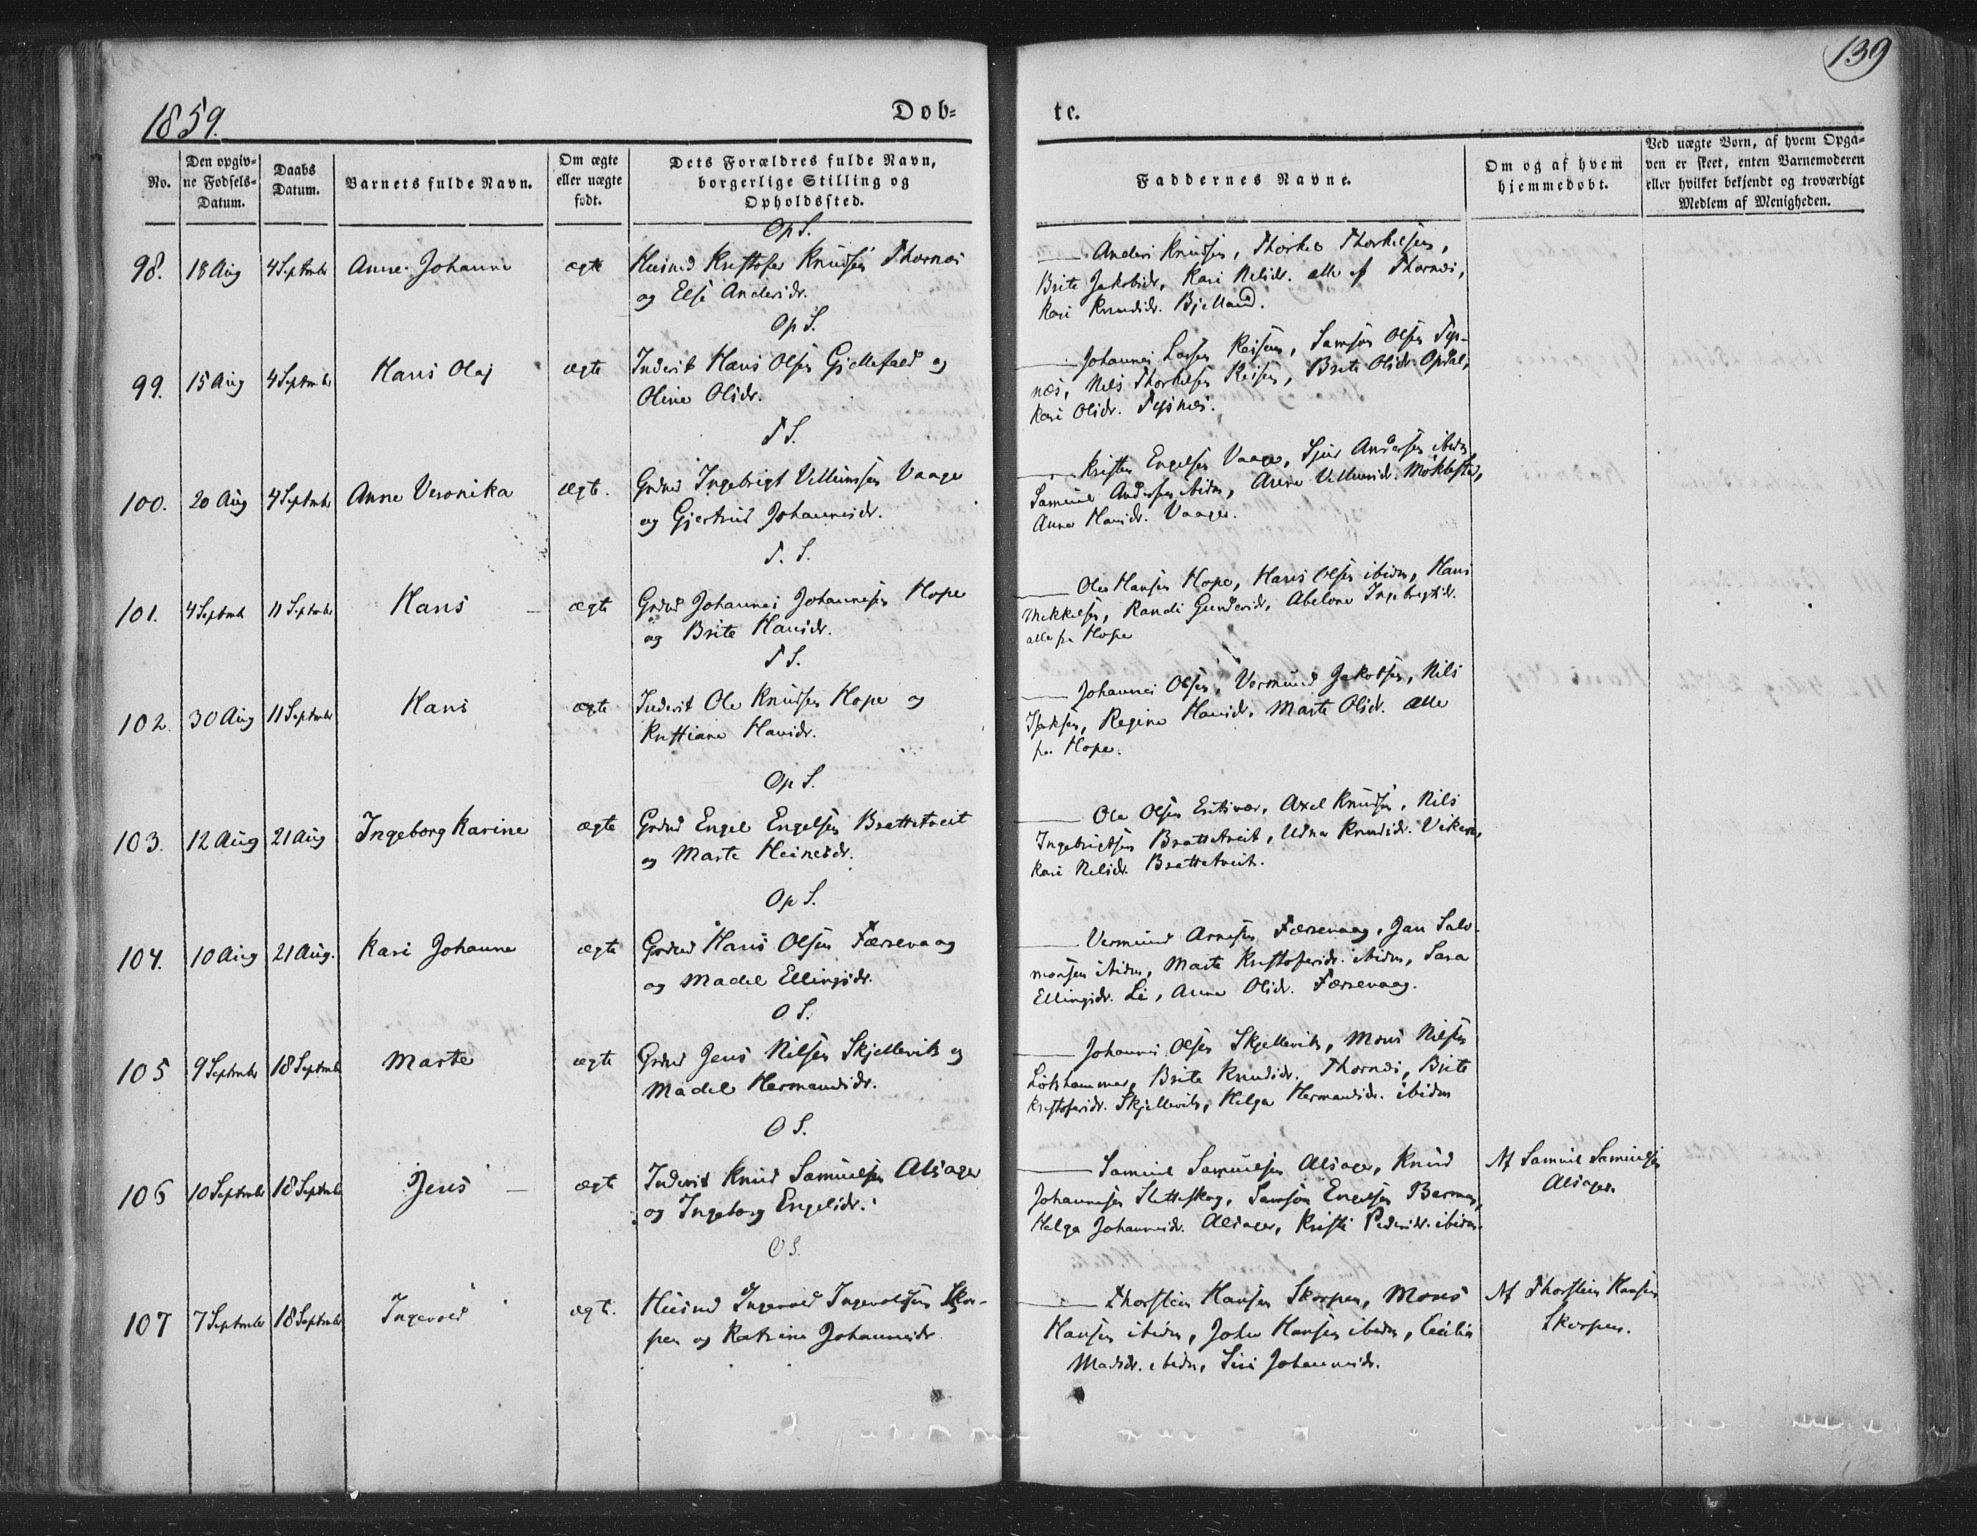 139
1859.
Døb=
te.
No.
Den opgiv=
ne Fødsels=
Datum.
Daabs
Datum.
Barnets fulde Navn.
Om ægte
eller uægte
født.
Dets Forældres fulde Navn,
borgerlige Stilling og
Opholdssted.
Faddernes Navne.
Om og af hvem
hjemmedøbt.
Ved uægte Børn, af hvem Opga=
ven er skeet, enten Barnemoderen
eller hvilket bekjendt og troværdigt
Medlem af Menigheden.
Op S.
98. 18 Aug 4 Septmbr Anne Johanne ægte Huusmd Kristofer Knudsen Thornæs
og Else Andersdr.
Anders Knudsen, Thorkel Thorkelsen,
Brite Jakobsdr, Kari Nilsdr. alle f Thornæs,
Kari Knudsdr. Bjelland.
Op S.
99. 15 Aug 4 Septmbr Hans Olaj ægte Inderst Hans Olsen Gjellefald og
Oline Olsdr.
Johannes Larsen Reisen, Samson Olsen Tys-
næs, Nils Thorkelsen Reisen, Brite Olsdr Opdal,
Kari Olsdr. Tysnæs.
T S.
100. 20 Aug 4 Septmbr Anne Veronika ægte. Grdmd Ingebrigt Villumsen Vaage
og Gjertrud Johannesdr.
Kristen Engelsen Vaage, Sjur Andersen ibidm
Samuel Andersen ibidm, Anne Villumsdr. Møklestad,
Anna Hansdr. Vaage.
T. S.
101. 4 Septmb 11 Septmbr Hans ægte Grdmd Johannes Johannesen Hope
og Brite Hansdr.
Ole Hansen Hope, Hans Olsen ibidm, Hans
Mikkelsen, Randi Gundersdr, Abelone Ingebrigtsdr.
alle fra Hope
T S.
102. 30 Aug 11 Septmbr Hans ægte Inderst Ole Knudsen Hope og
Kristiane Hansdr.
Johannes Olsen, Vermund Jakobsen, Nils
Isaksen, Regine Hansdr, Marte Olsdr. alle
fra Hope.
Op S.
103. 12 Aug 21 Aug Ingeborg Karine ægte Grdmd Engel Engelsen Brattetveit
og Marte Heinesdr.
Ole Olsen, Axel Knudsen, Nils
Ingebrigtsen Brattetveit, Udna Knudsdr.
Kari Nilsdr. Brattetveit.
Op S.
104. 10 Aug 21 Aug. Kari Johanne ægte Grdmd Hans Olsen Færsevaag
og Madel Ellingsdr.
Vermund Arnesen Færsevaag, Jan Salo-
monsen ibidm, Marte Kristofersdr. ibidm, Sara
Ellingsdr. Li, Anne Olsdr. Færsevaag.
O S.
105 9 Septmbr 18 Septmbr Marte ægte Grdmd Jens Nilsen Skjellevik og
Madel Hermandsdr.
Johannes Olsen Skjellevik, Mons Nilsen
Lökhammer, Brite Knudsdr. Thornæs, Brite
Kristofersdr. Skjellevik, Helga Hermandsdr. ibidm
O S.
106 10 Septmbr 18 Septmbr Jens ægte Inderst Knud Samuelsen Alsager
og Ingeborg Engelsdr.
Samuel Samuelsen Alsager, Knud
Johannesen Sletteskog, Samson Engelsen
Helga Johannesdr. Alsager, Kristi Pedersdr. ibidm.
Af Samuel Samuelsen
Alsager.
O S.
107 7 Septmbr 18 Septmbr Ingevold ægt. Huusmd Ingevold Ingevoldsen Skor-
pen og Katrine Johannesdr
Thorstein Hansen Skorpen, Mons
Hansen ibidm, John Hansen ibidm, Cecilia
Madsdr. ibidm, Siri Johannesdr.
Af Thorstein Hansen
Skorpen.